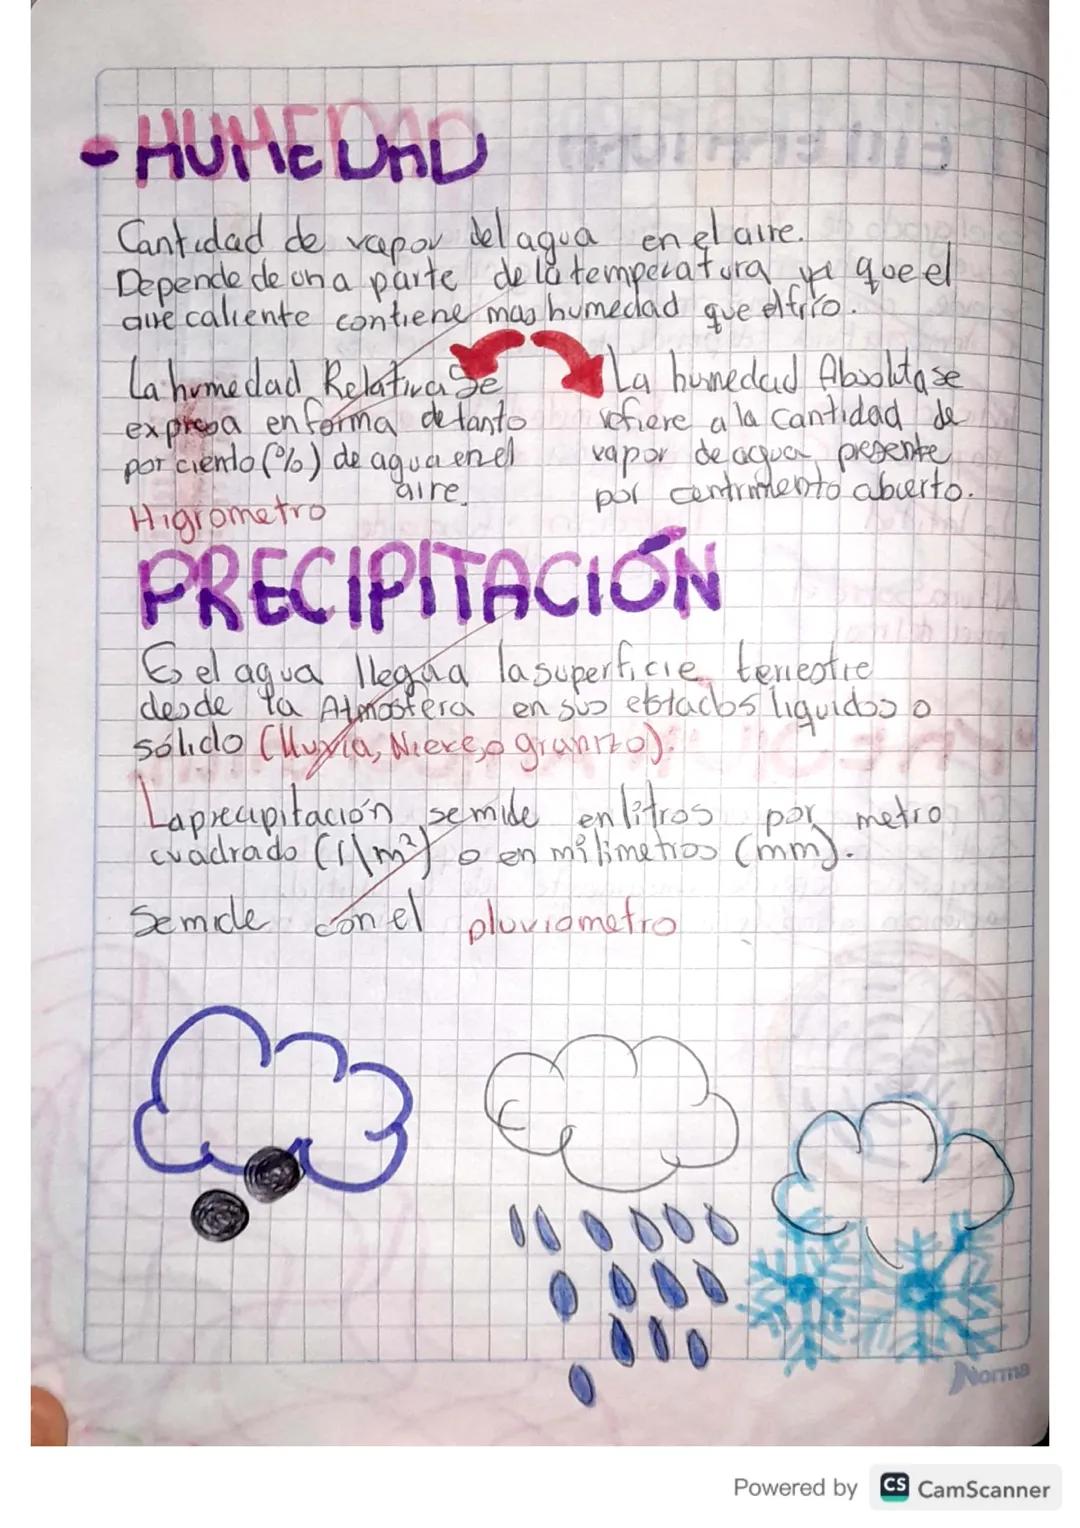 - HUMEDAD
Cantidad de vapor del agua en el aire.
Depende de una parte de la temperatura ya que el
aire caliente contiene mas humedad que el frío.
La humedad Relativa Se
expresa en forma de tanto
por ciento (%) de agua en el
aire.
Higrometro
La humedad Absoluta se
refiere a la cantidad de
vapor de agua presente
por centrimento abierto.
PRECIPITACIÓN
Es el agua llega a la superficie terrestre
desde la Atmosfera en sus estados liquidos o
sólido (lluvia, Nieve, o granizo).
La precipitación se mide en litros por metro
cuadrado (l\m²) o en milimetros (mm).
Se mide con el pluviometro
Norma
Powered by CS CamScanner